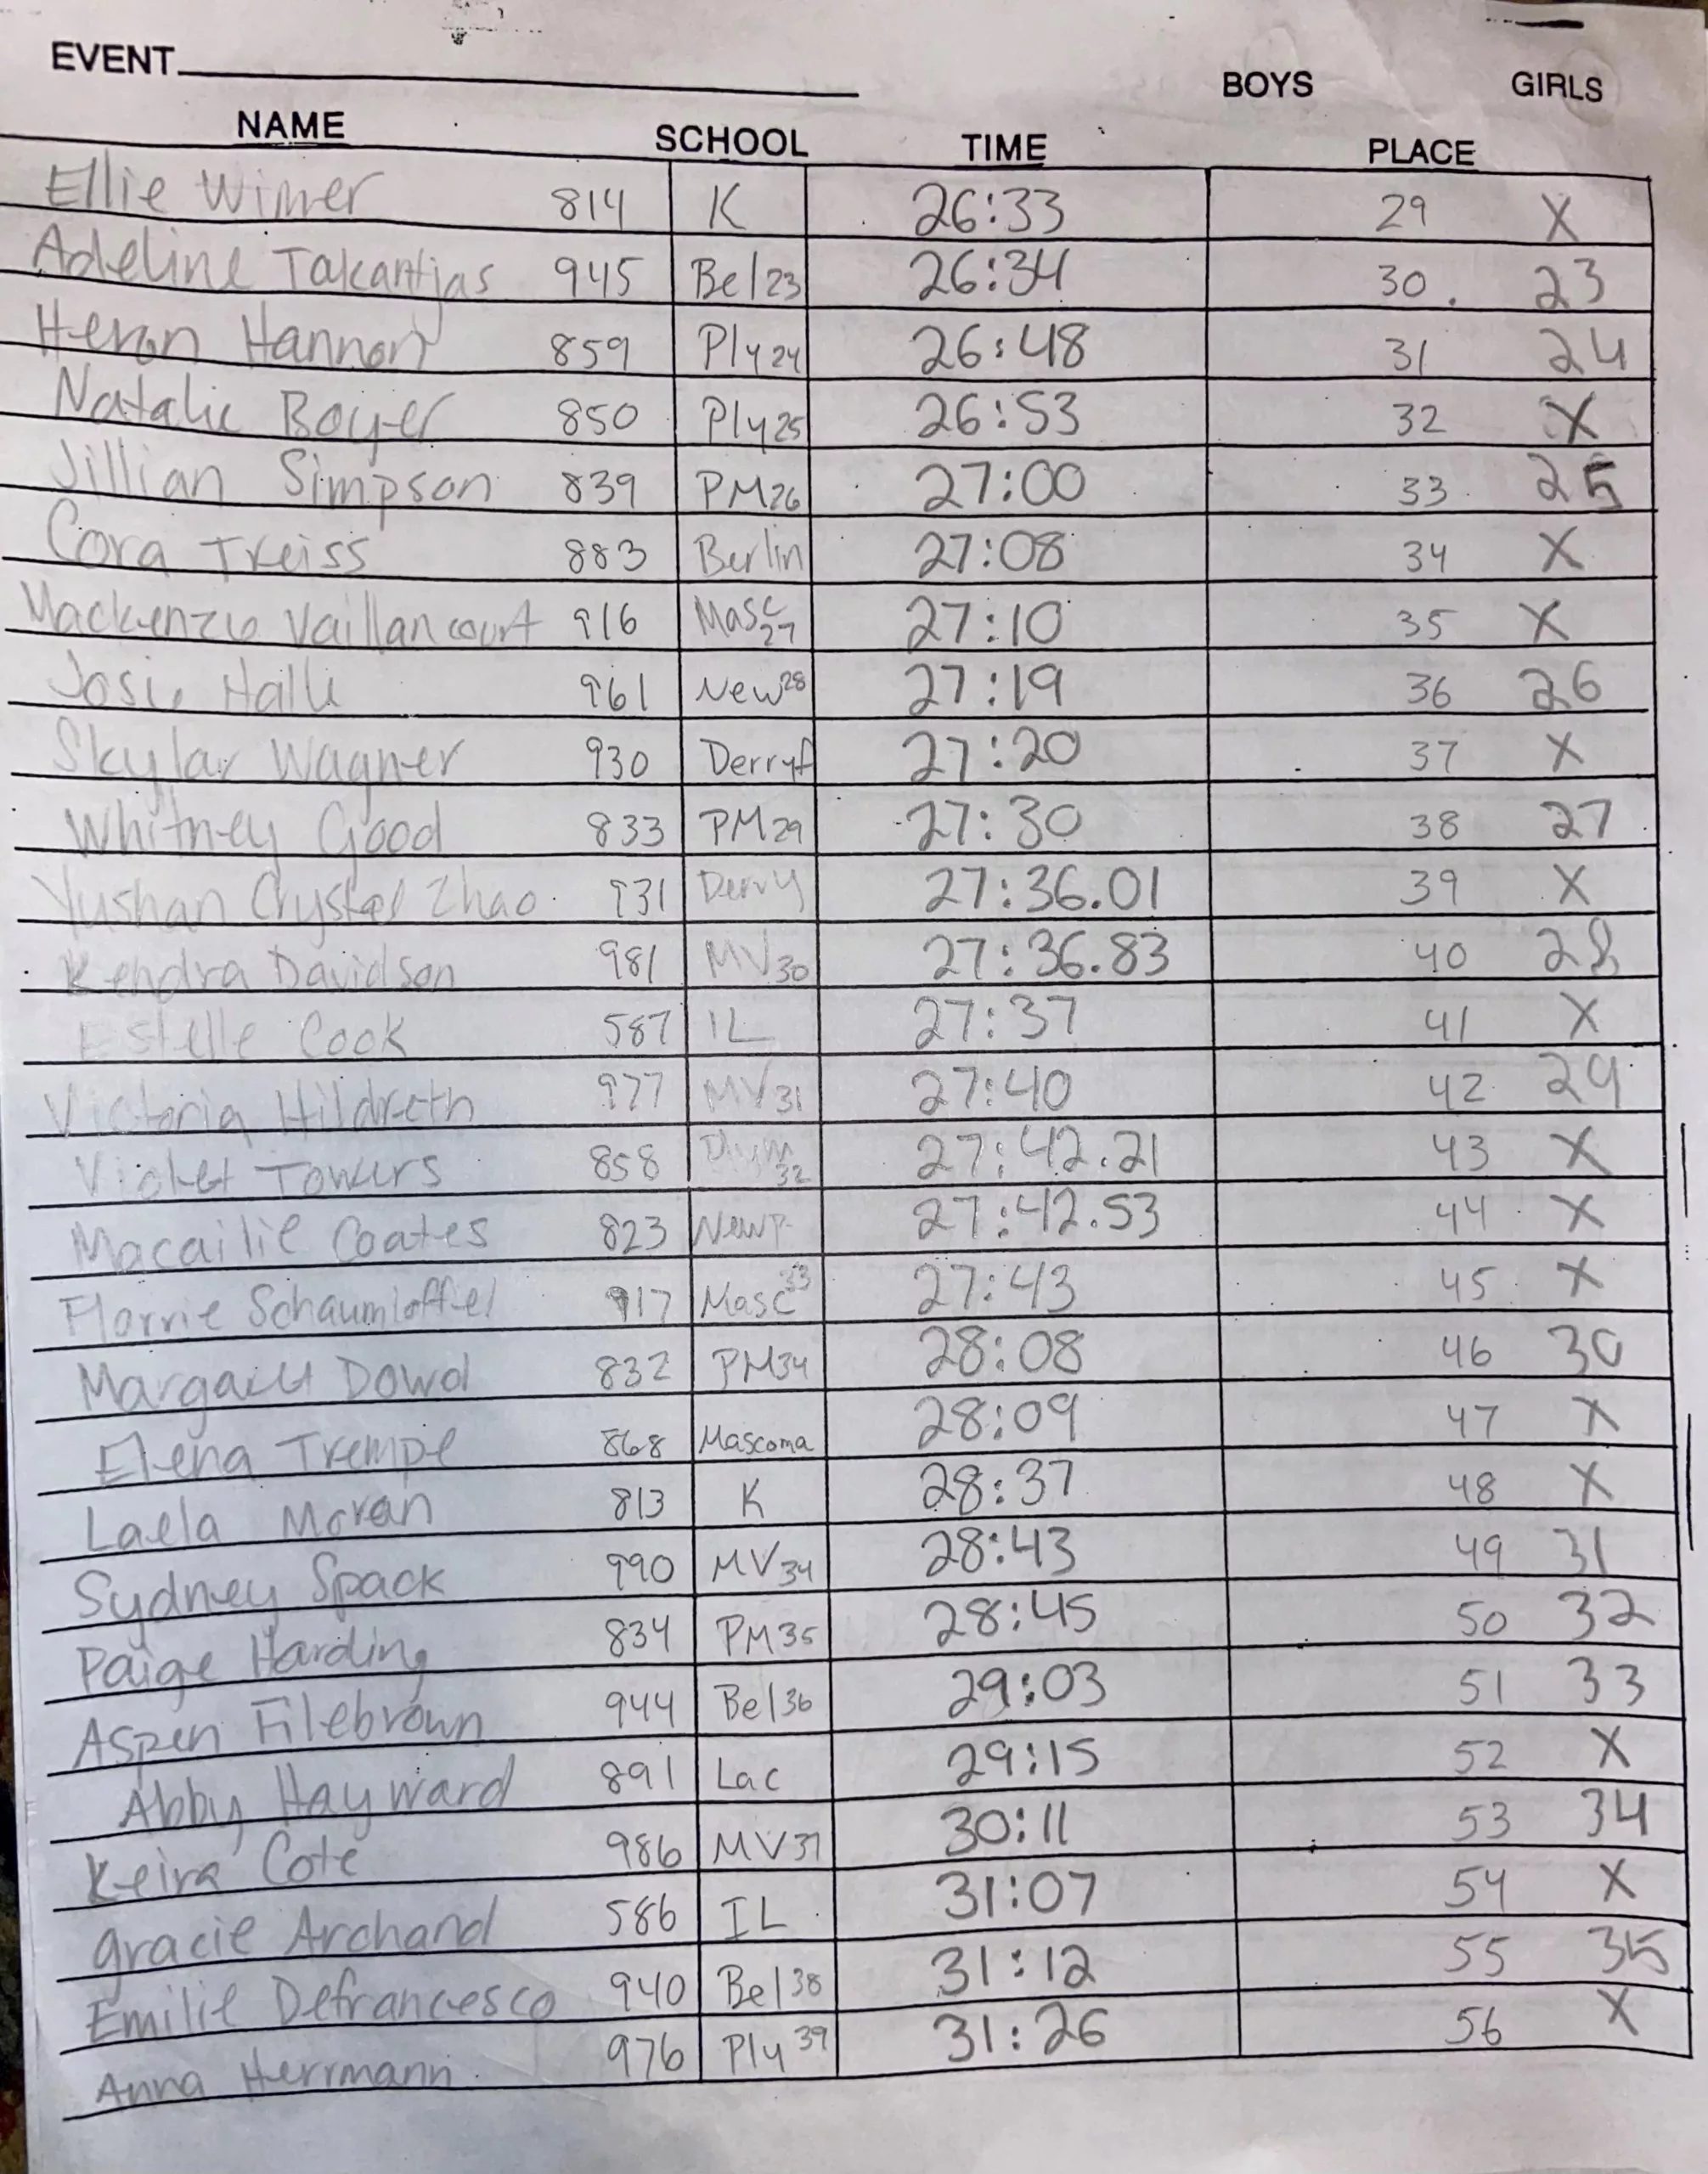 EVENT BOYS GIRLS
NAME SCHOOL TIME PLACE
Ellie Wimer 814 K 26:33 29 X
Adeline Takantjas 945 Bel 23 26:34 30. 23
Heron Hannon 859 Ply 24 26:48 31 24
Natalie Boyer 850 Ply 25 26:53 32 X
Jillian Simpson 839 PM 26 27:00 33 25
Cora Treiss 883 Berlin 27:08 34 X
Mackenzie Vaillancourt 916 Masc 27 27:10 35 X
Josie Halle 961 New 28 27:19 36 26
Skylar Wagner 930 Derryf 27:20 37 X
Whitney Good 833 PM 29 27:30 38 27
Yushan Crystal Zhao 931 Derry 27:36.01 39 X
Kendra Davidson 981 MV 30 27:36.83 40 28
Estelle Cook 587 IL 27:37 41 X
Victoria Hildreth 977 MV 31 27:40 42 29
Violet Towers 858 Plym 32 27:42.21 43 X
Macailie Coates 823 Newp 27:42.53 44 X
Florrie Schaumloffel 917 Masc 33 27:43 45 X
Dowd 832 PM 34 28:08 46 30
Elena Trempe 868 Mascoma 28:09 47 X
Laela Moran 813 K 28:37 48 X
Sydney Spack 990 MV 34 28:43 49 31
Paige Harding 834 PM 35 28:45 50 32
Aspen Filebrown 944 Bel 36 29:03 51 33
Abby Hayward 891 Lac 29:15 52 X
Keira Cote 986 MV 37 30:11 53 34
Gracie Archand 586 IL 31:07 54 X
Emilie Defrancesco 940 Bel 38 31:12 55 35
Anna Herrmann 976 Ply 39 31:26 56 X